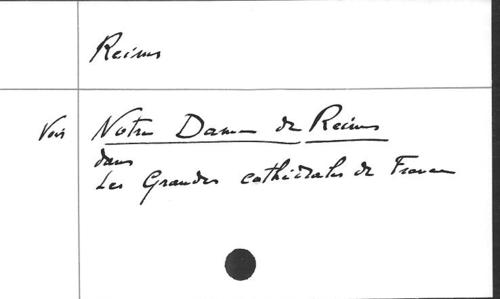 Reims
Voir Notre Dame de Reims
dans
Les Grandes cathédrales de France